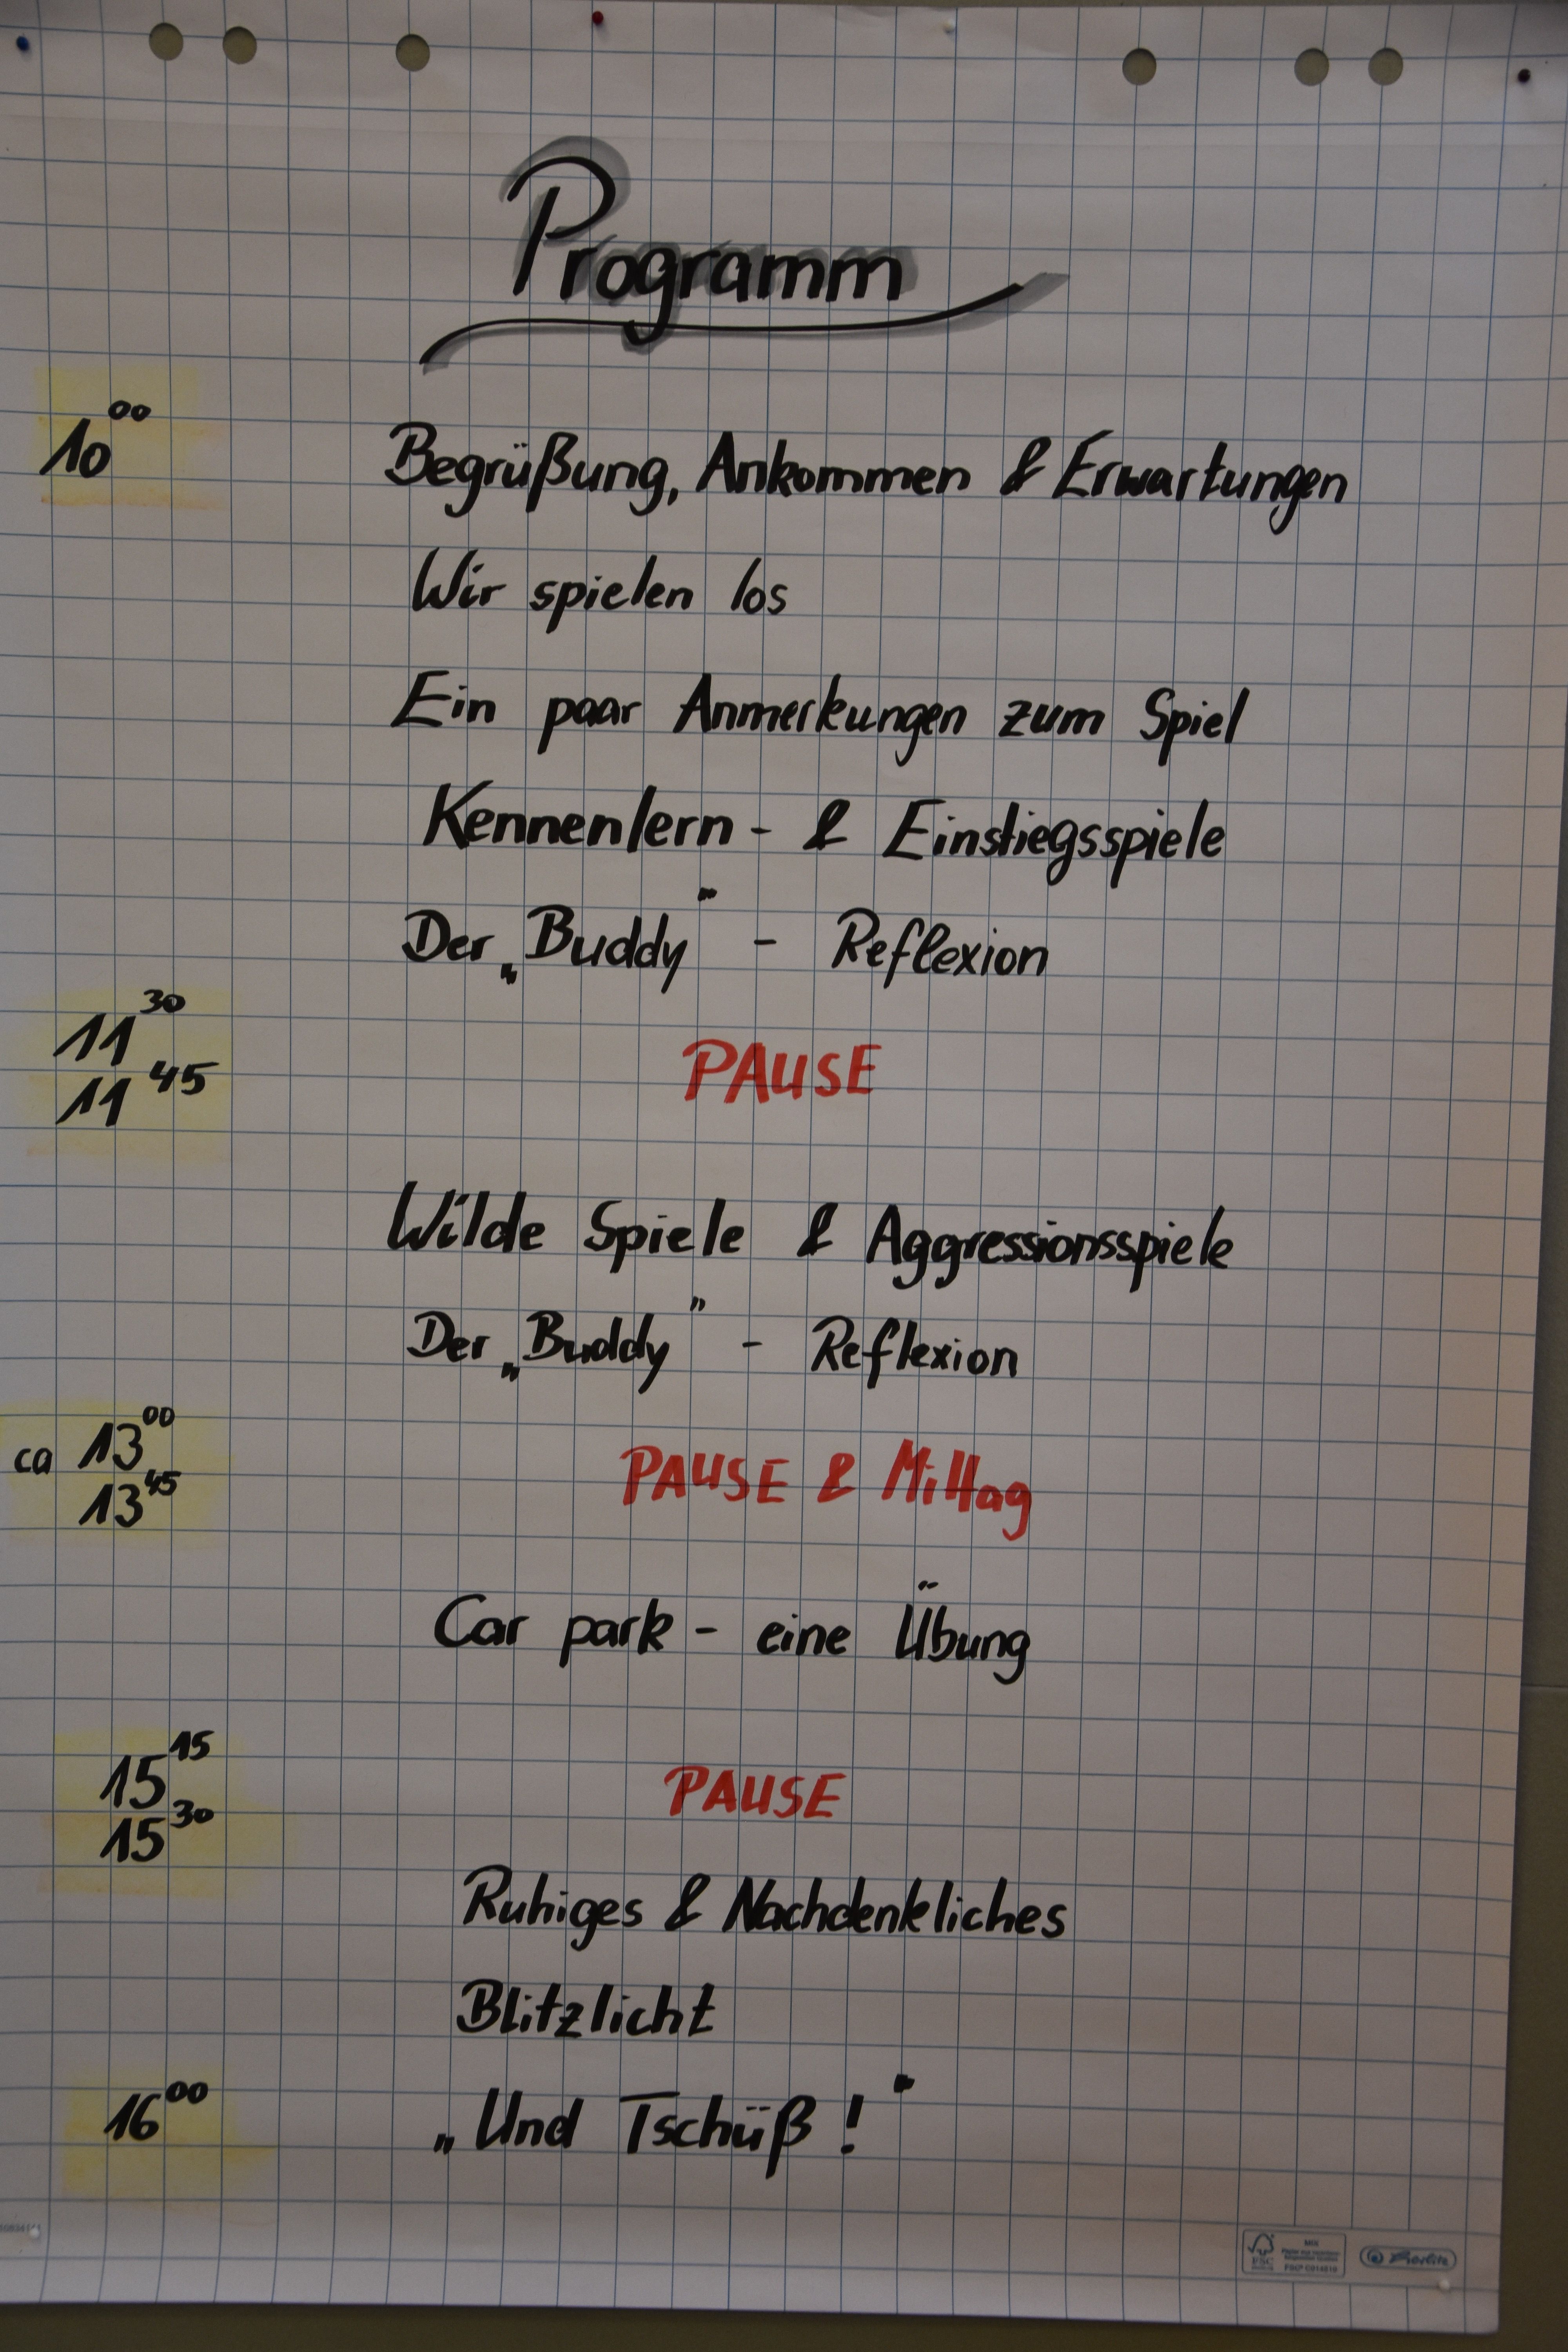 Programm
10 00 Begrüßung, Ankommen & Erwartungen
Wir spielen los
Ein paar Anmerkungen zum Spiel
Kennenlern- & Einstiegsspiele
Der „Buddy" - Reflexion
11 30
PAUSE
11 45
Wilde Spiele & Aggressionsspiele
Der „Buddy" - Reflexion
ca 13 00
PAUSE & Mittag
13 45
Car park - eine Übung
15 15
PAUSE
15 30
Ruhiges & Nachdenkliches
Blitzlicht
16 00 „Und Tschüß!"
FSC
MIX
Herlitz